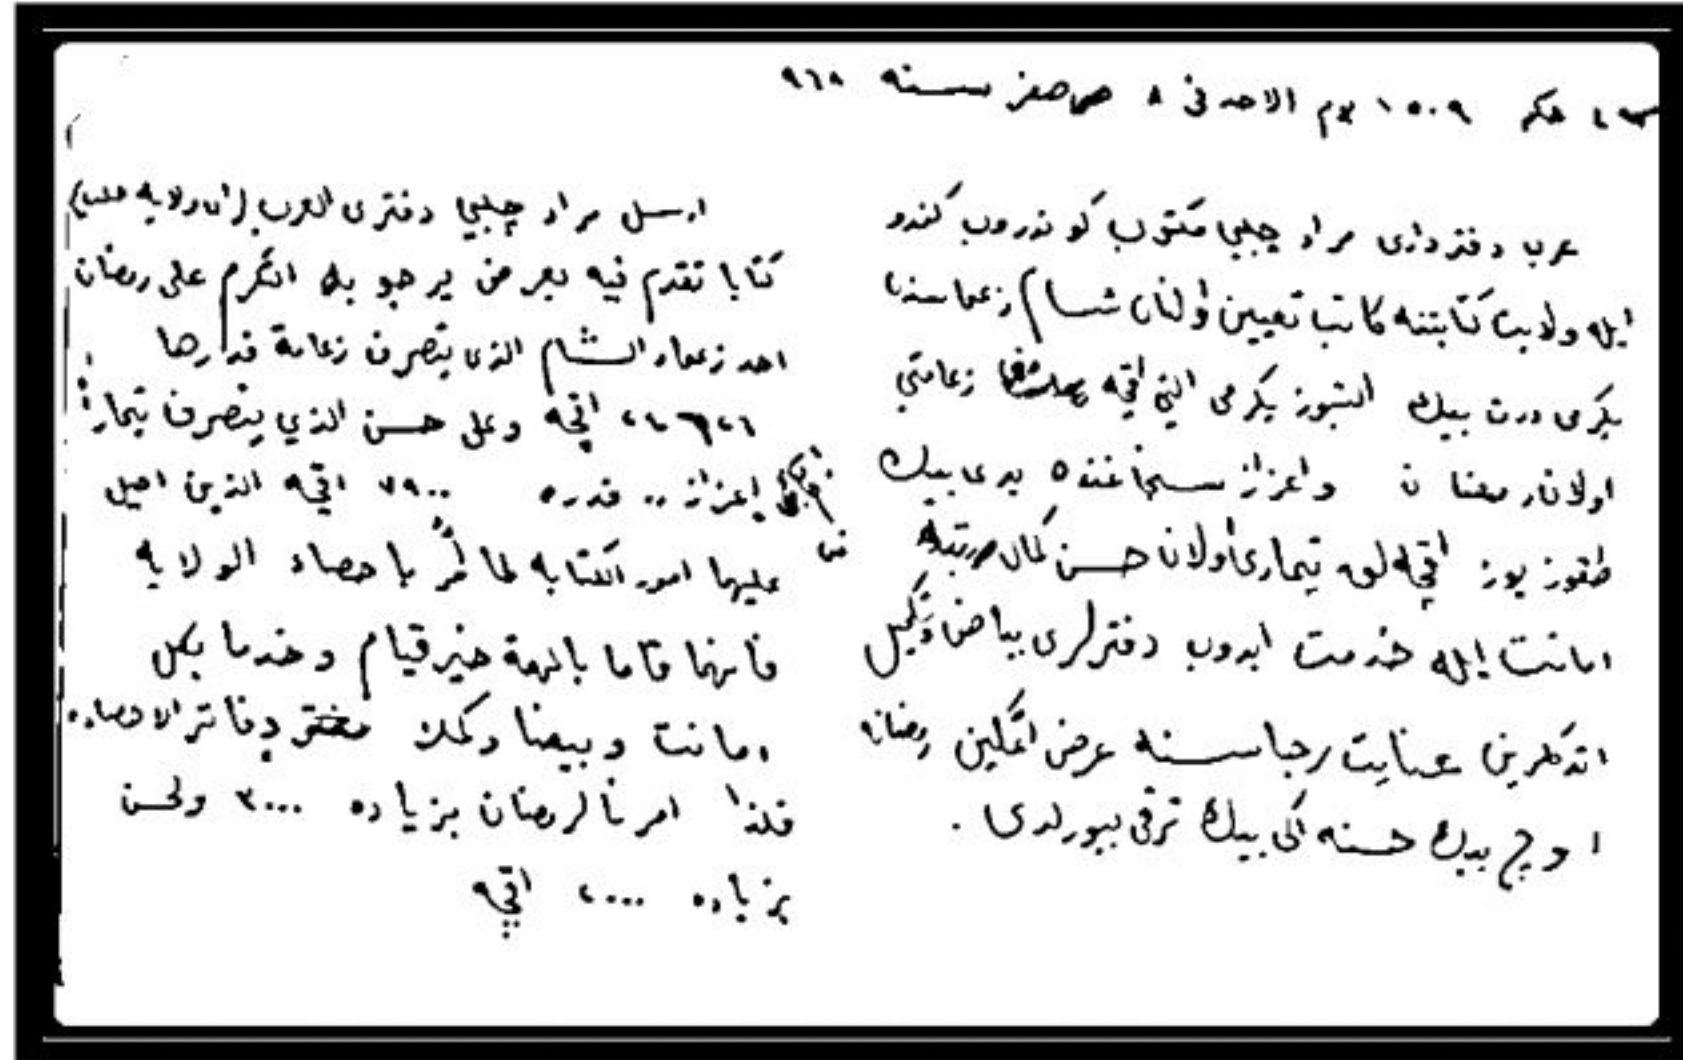 حكم ١٥٠٩ يوم الاحد في ٨ صفر سنه ٩٦٨
عرب دفتردارى مراد چلبي مكتوب كوندروب كندو
ايله ولايت كتابتنه كاتب تعيين اولنان شام زعماسندن
يكرمى درت بيك اليتيوز يكرمى التي اقچه زعامتي
اولان رمضان واعزاز سنجاغنده يدى بيك
طقوز يوز اقچه لق تيمارى اولان حسن كمال مرتبه
امانت ايله خدمت ايدوب دفترلرى بياض وتكميل
اتدكلرين عنايت رجاسنه عرض اتمكين رمضانه
اوچ بيك حسنه اكى بيك ترقى بيورلدى .
ارسل مراد چلبي دفترى العرب (اى ولاية حلب)
كتابا تقدم فيه بعرض يرجو به التكرم على رمضان
احد زعماء الشام الذى يتصرف زعامة قدرها
اقچه وعلى حسن الذي يتصرف تيمارا
إعزاز .. قدره ٧٩٠٠ اقچه الذين احيل
عليهما امور الكتابه لما أُمر باحصاء الولايه
فانهما قاما بالهمة خير قيام وخدما بكل
امانت وبيضا وكملا دفاتر الاحصاء.
فلذا امرنا لرمضان بزياده ٣٠٠٠ ولحسن
بزياده ٢٠٠٠ اقچه